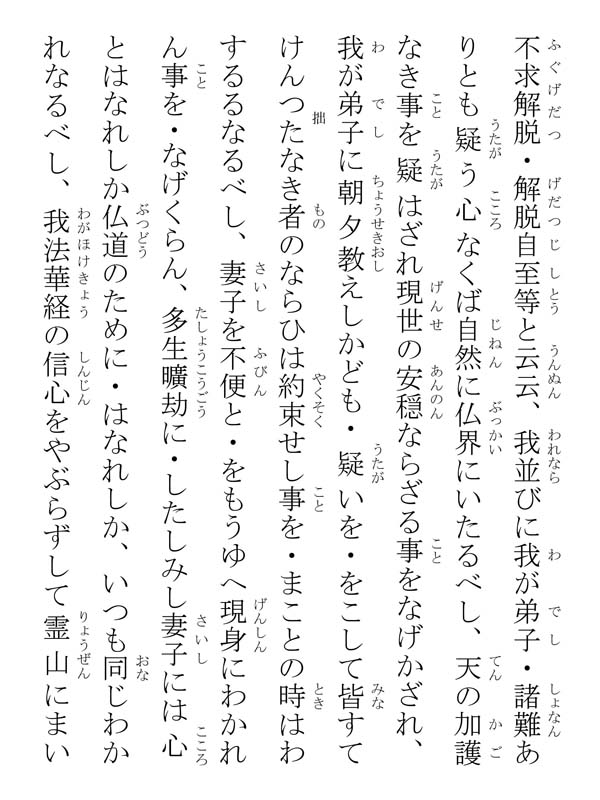 不求解脱・解脱自至等と云云、我並びに我が弟子・諸難あ
りとも疑う心なくば自然に仏界にいたるべし、天の加護
なき事を疑はざれ現世の安穏ならざる事をなげかざれ、
我が弟子に朝夕教えしかども・疑いを・をこして皆すて
けんつたなき者のならひは約束せし事を・まことの時はわ
するるなるべし、妻子を不便と・をもうゆへ現身にわかれ
ん事を・なげくらん、多生曠劫に・したしみし妻子には心
とはなれしか仏道のために・はなれしか、いつも同じわか
れなるべし、我法華経の信心をやぶらずして霊山にまい